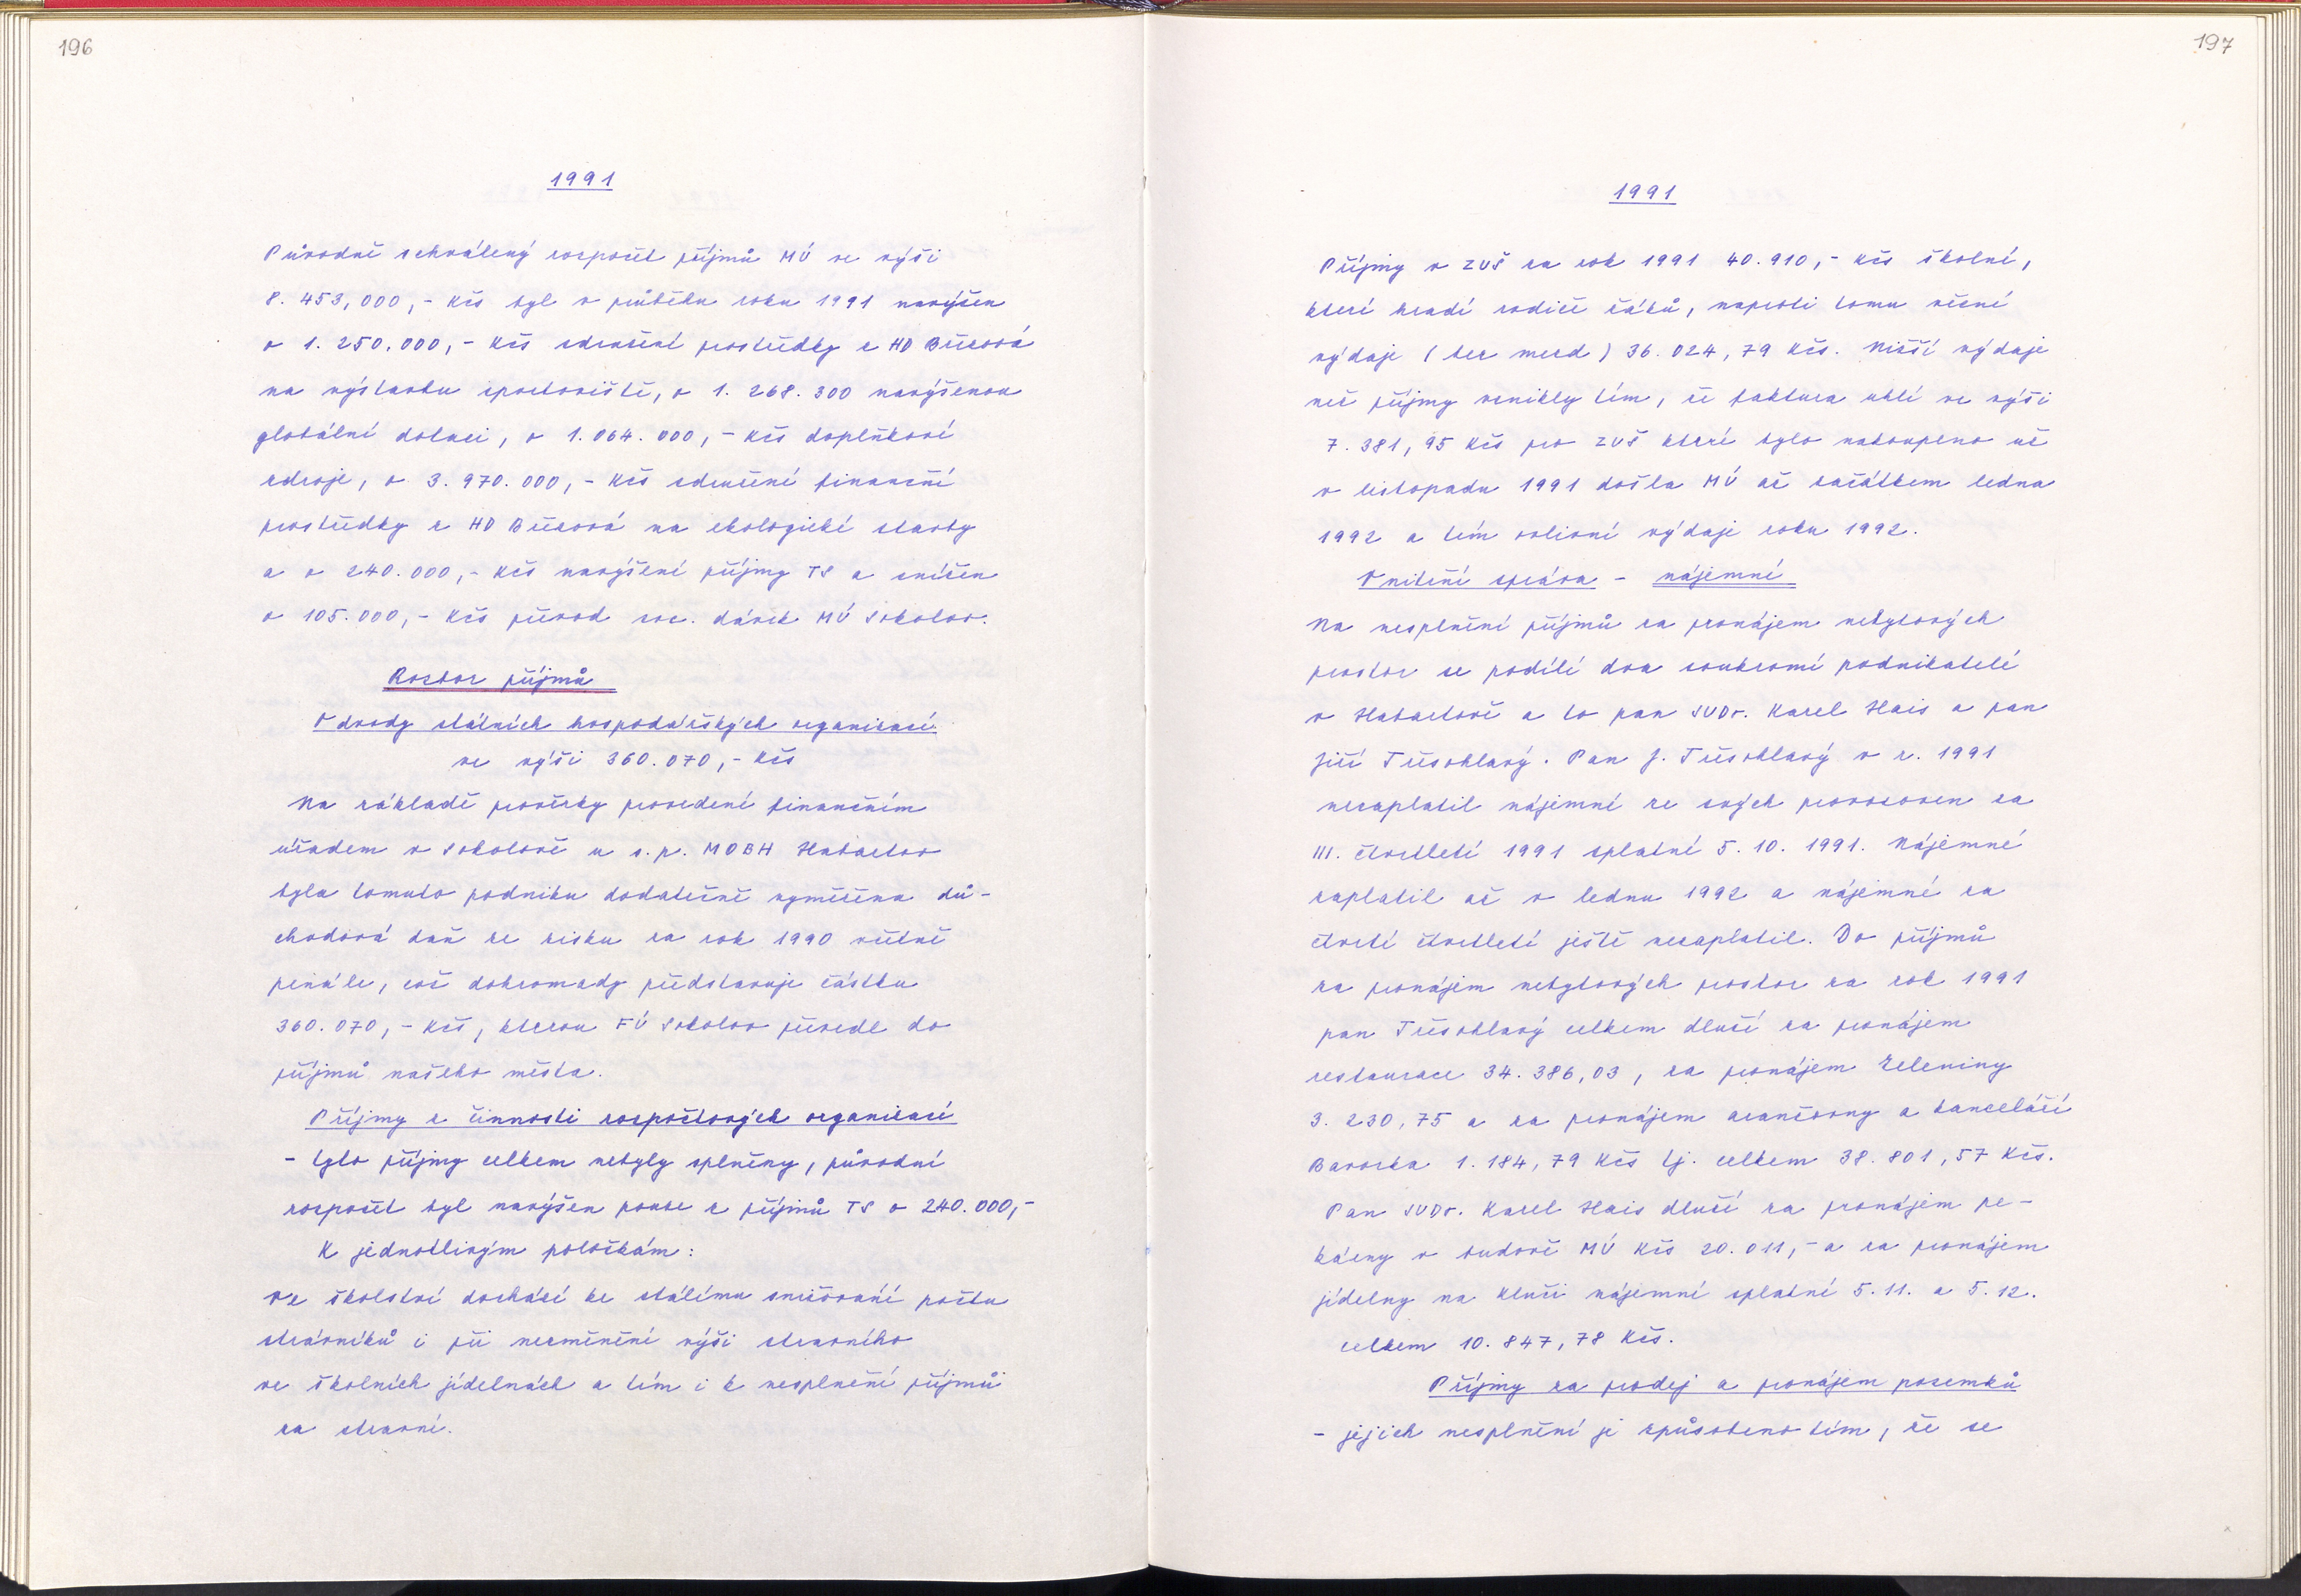 196
1991
Původně schválený rozpočet příjmů MÚ ve výši
8. 453,000,- Kčs byl v průběhu roku 1991 navýšen
o 1. 250.000,- Kčs sdružené prostředky z HD Březová
na výstavbu sportoviště, o 1. 268. 300 navýšenou
globální dotaci, o 1. 064. 000,- Kčs doplňkové
zdroje, o 3. 970. 000,- Kčs sdružené finanční
prostředky z HD Březová na ekologické stavby
a o 240.000,- Kčs navýšení příjmy TS a snížen
o 105.000,- Kčs převod soc. dávek MÚ Sokolov.
Rozbor příjmů
Odvody státních hospodářských organizací:
ve výši 360.070,- Kčs
Na základě prověrky provedené finančním
úřadem v Sokolově u s.p. MOBH Habartov
byla tomuto podniku dodatečně vyměřena dů-
chodová daň ze zisku za rok 1990 včetně
penále, což dohromady představuje částku
360. 070,- Kčs, kterou FÚ Sokolov převedl do
příjmů našeho města.
Příjmy z činnosti rozpočtových organizací
- tyto příjmy celkem nebyly splněny, původní
rozpočet byl navýšen pouze z příjmů TS o 240.000,-
K jednotlivým položkám:
Ve školství dochází ke stálému snižování počtu
strávníků i při nezměněné výši stravného
ve školních jídelnách a tím i k nesplnění příjmů
za stravné.
197
1991
Příjmy v ZUŠ za rok 1991 40.910,- Kčs školné,
které hradí rodiče žáků, naproti tomu věcné
výdaje (bez mezd) 36. 024, 79 Kčs. Nižší výdaje
než příjmy vznikly tím, že faktura uhlí ve výši
7. 381, 95 Kčs pro ZUŠ které bylo nakoupeno už
v listopadu 1991 došla MÚ až začátkem ledna
1992 a tím ovlivní výdaje roku 1992.
Vnitřní správa - nájemné
Na nesplnění příjmů za pronájem nebytových
prostor se podílí dva soukromí podnikatelé
v Habartově a to pan JUDr. Karel Hais a pan
Jiří Třísohlavý. Pan J. Třísohlavý v r. 1991
nezaplatil nájemné ze svých provozoven za
III. čtvrtletí 1991 splatné 5. 10. 1991. Nájemné
zaplatil až v lednu 1992 a nájemné za
čtvrté čtvrtletí ještě nezaplatil. Do příjmů
za pronájem nebytových prostor za rok 1991
pan Třísohlavý celkem dluží za pronájem
restaurace 34. 386,03, za pronájem Zeleniny
3. 230, 75 a za pronájem aranžovny a kanceláří
Bavorka 1. 184, 79 Kčs tj. celkem 38. 801, 57 Kčs.
Pan JUDr. Karel Hais dluží za pronájem pe-
kárny v budově MÚ Kčs 20. 011,- a za pronájem
jídelny na Kluči nájemné splatné 5. 11. a 5. 12.
celkem 10. 847, 78 Kčs.
Příjmy za prodej a pronájem pozemků
- jejich nesplnění je způsobeno tím, že se